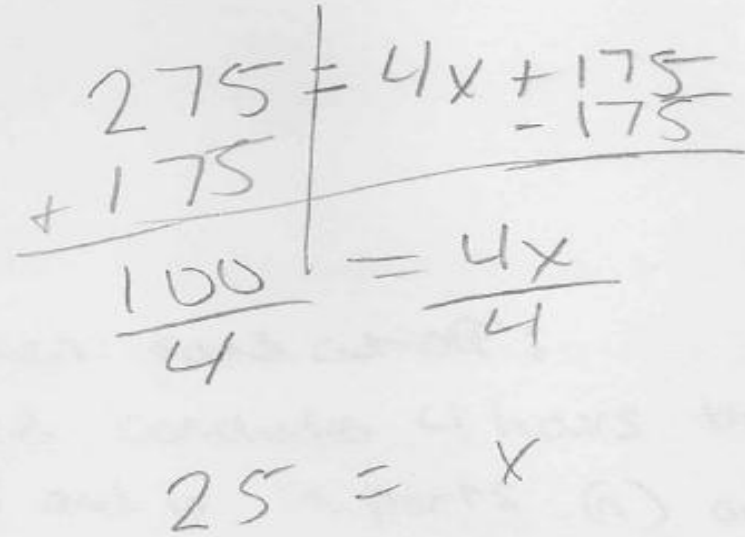 275 = 4x + 175
+ 175 - 175
100 = 4x
4 4
25 = x